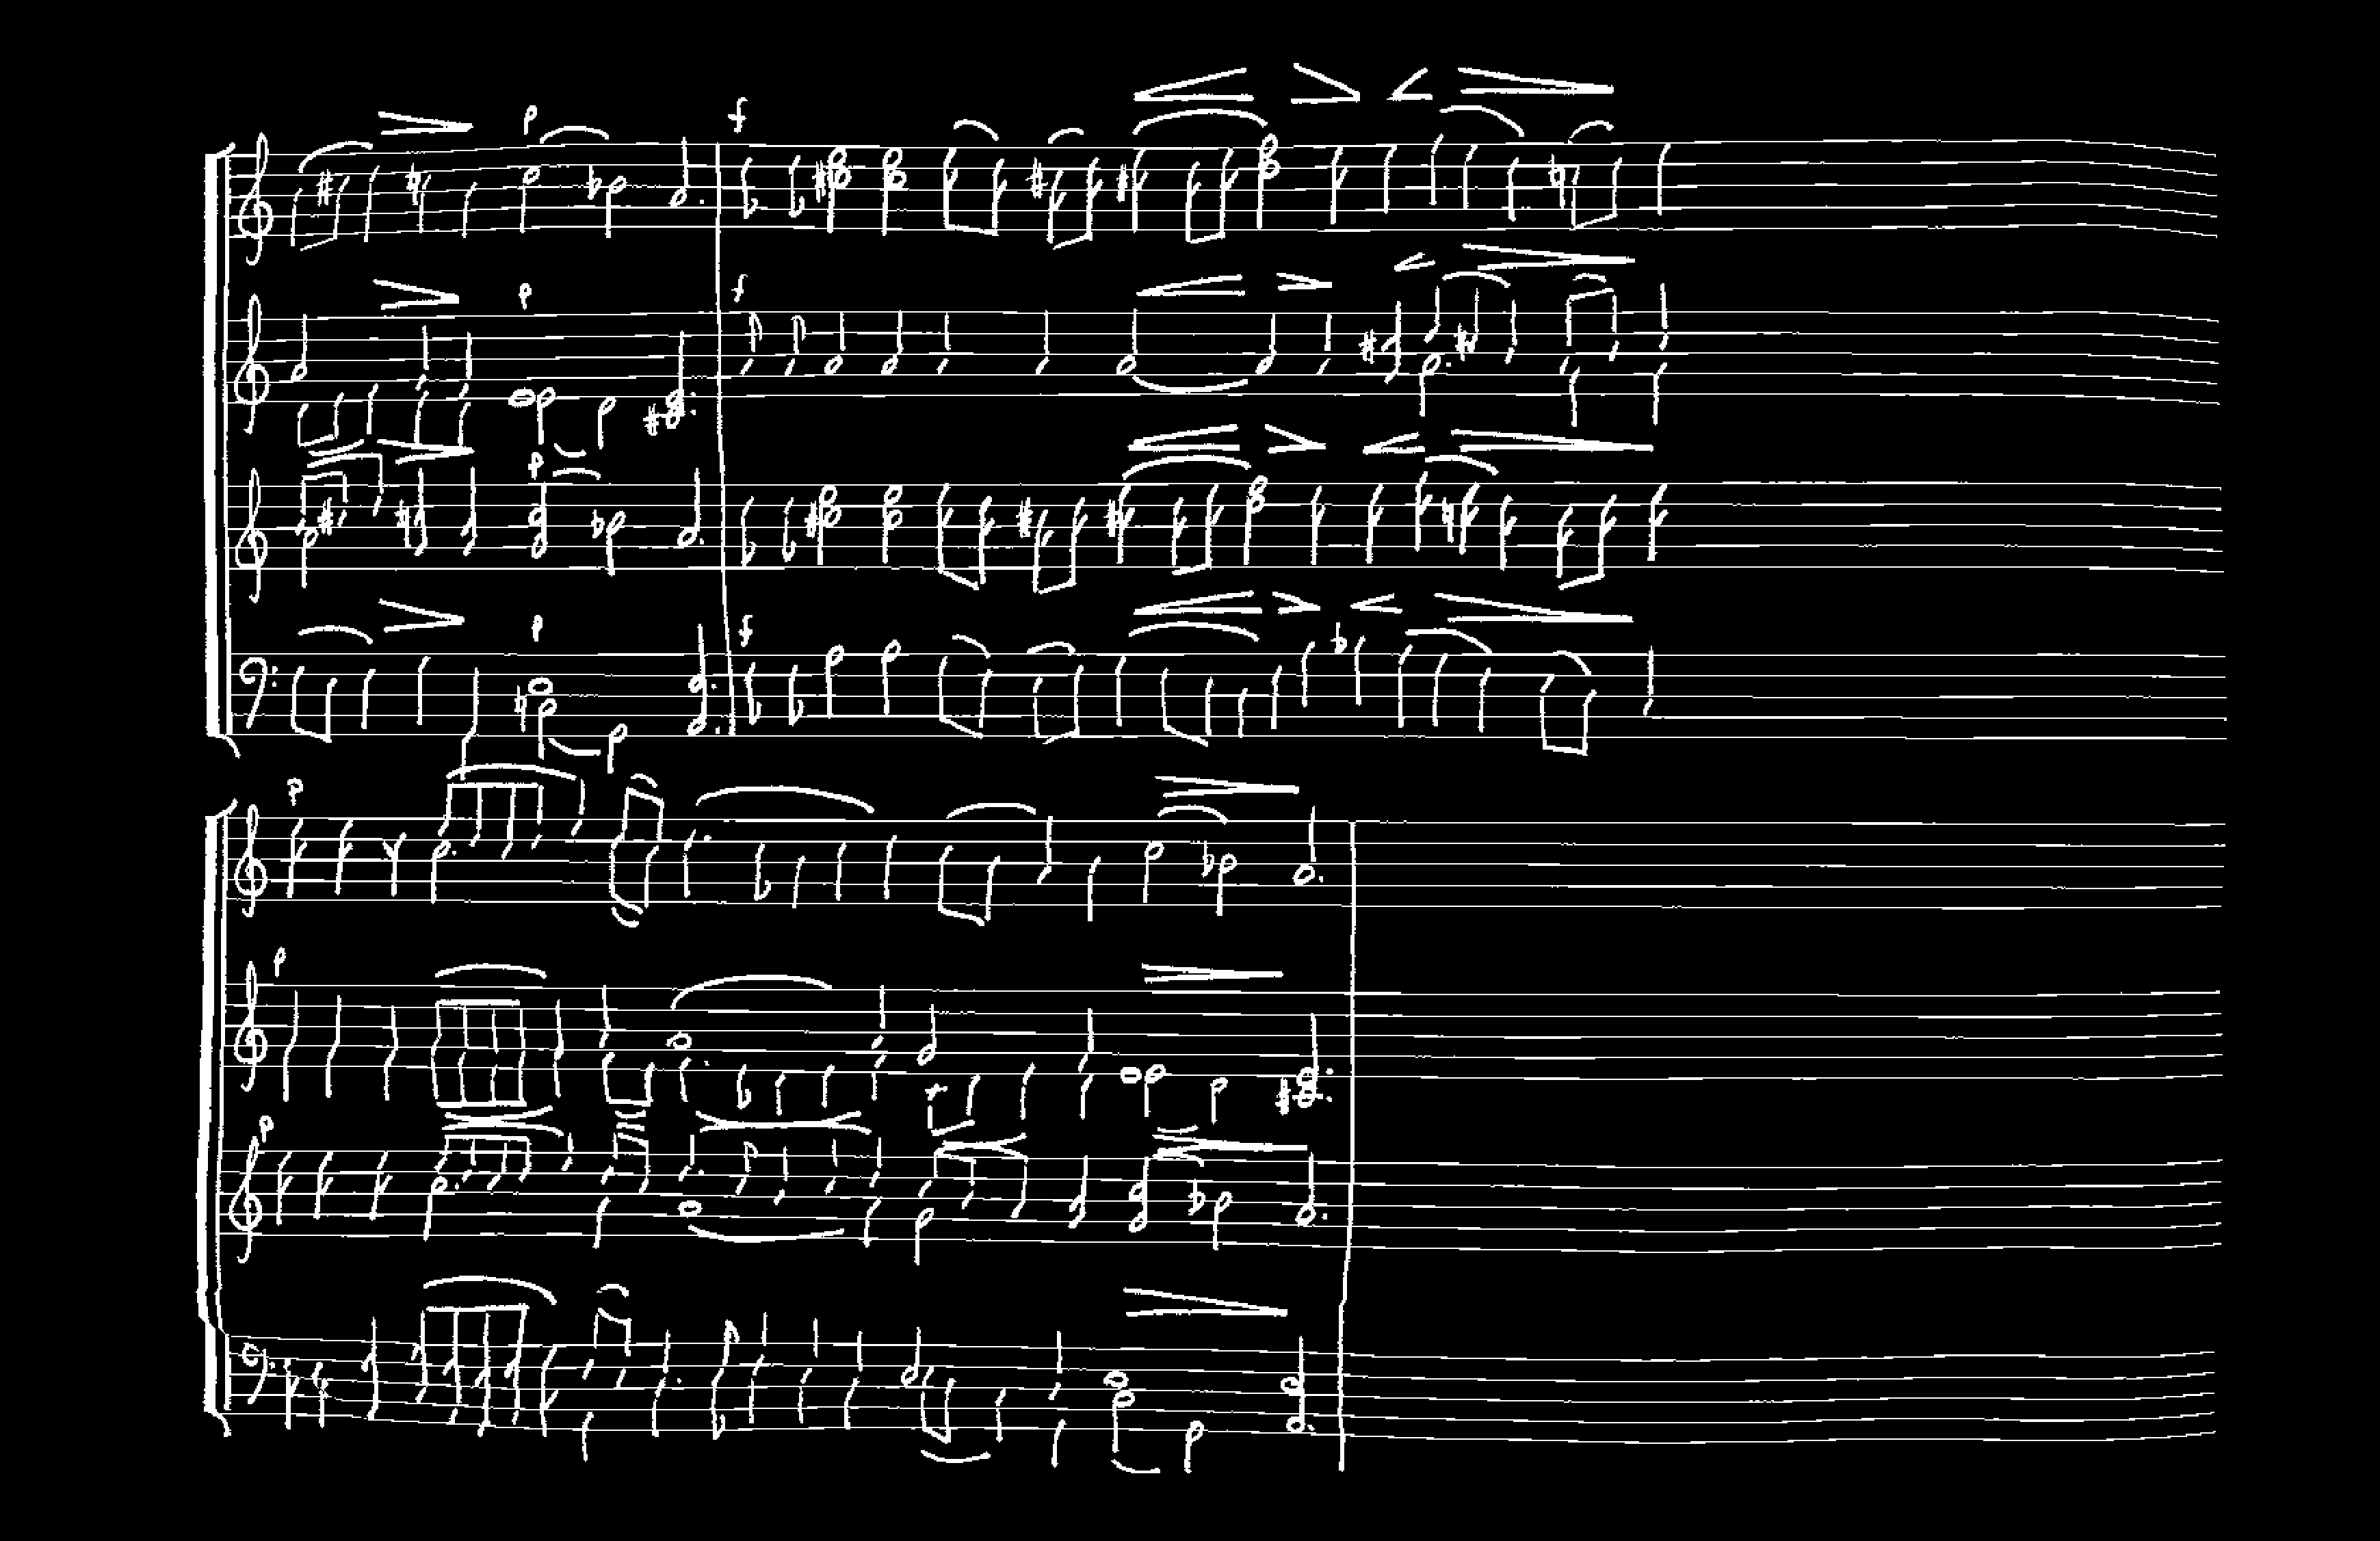 p f
p f
p
p f
p
p
p